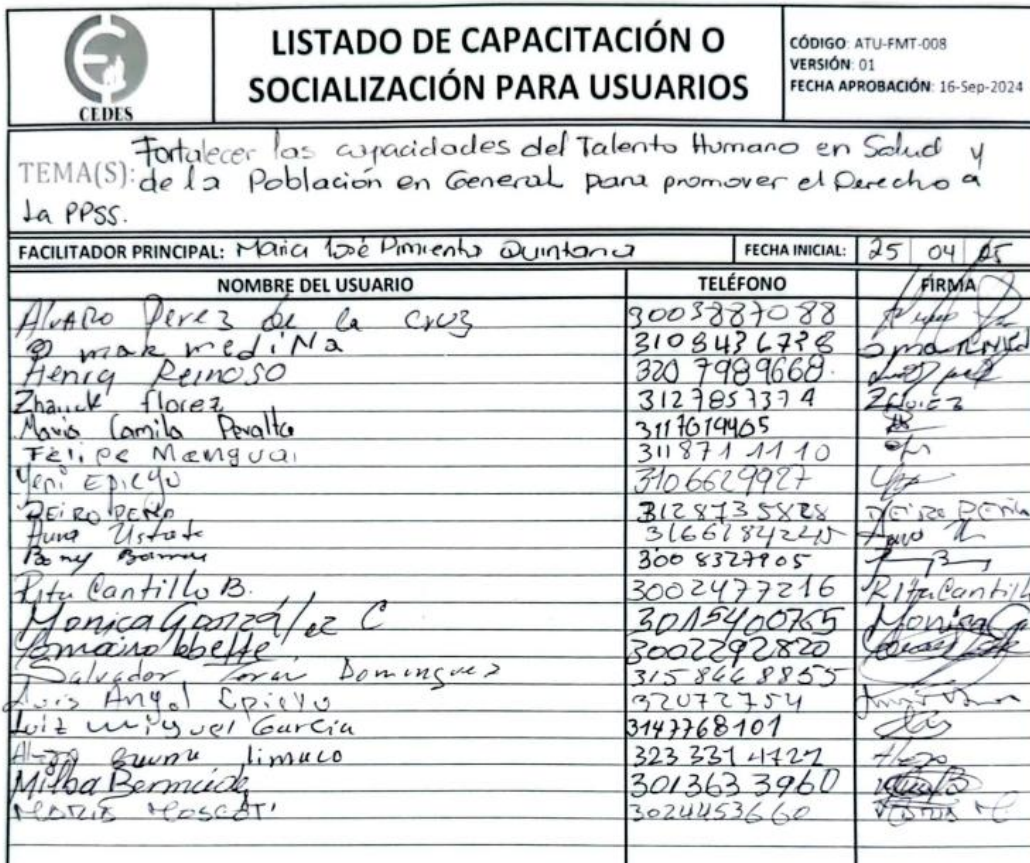 CEDES
LISTADO DE CAPACITACIÓN O
SOCIALIZACIÓN PARA USUARIOS
CÓDIGO: ATU-FMT-008
VERSIÓN: 01
FECHA APROBACIÓN: 16-Sep-2024
TEMA(S): Fortalecer las capacidades del Talento Humano en Salud y
de la Población en General para promover el Derecho a
La PPSS.
FACILITADOR PRINCIPAL: Maria José Pimienta Quintana FECHA INICIAL: 25 04 25
NOMBRE DEL USUARIO TELÉFONO FIRMA
Alvaro Perez de la Cruz 3003887088
Omar mediNa 3108436738
Henry Reinoso 320 7989668
Zhauck florez 3127857374
Maria Camila Peralta 3117619405
Felipe 311871 11 10
Yeni Epieyu 3106629927
DEiRO PEÑA 3128735828 DEiRO PEÑA
Ustate
300 8327905
Rita Cantillo B. 3002477216 Rita Cantill
Monica González C 3015400765 Monica G
3002292820
Salvador Dominguez 3158668855
Luis Angel Epieyu 32072754
Luiz miguel Garcia 3147768101
323 331 4722
Milba Bermudez 301363 3960
3024453660